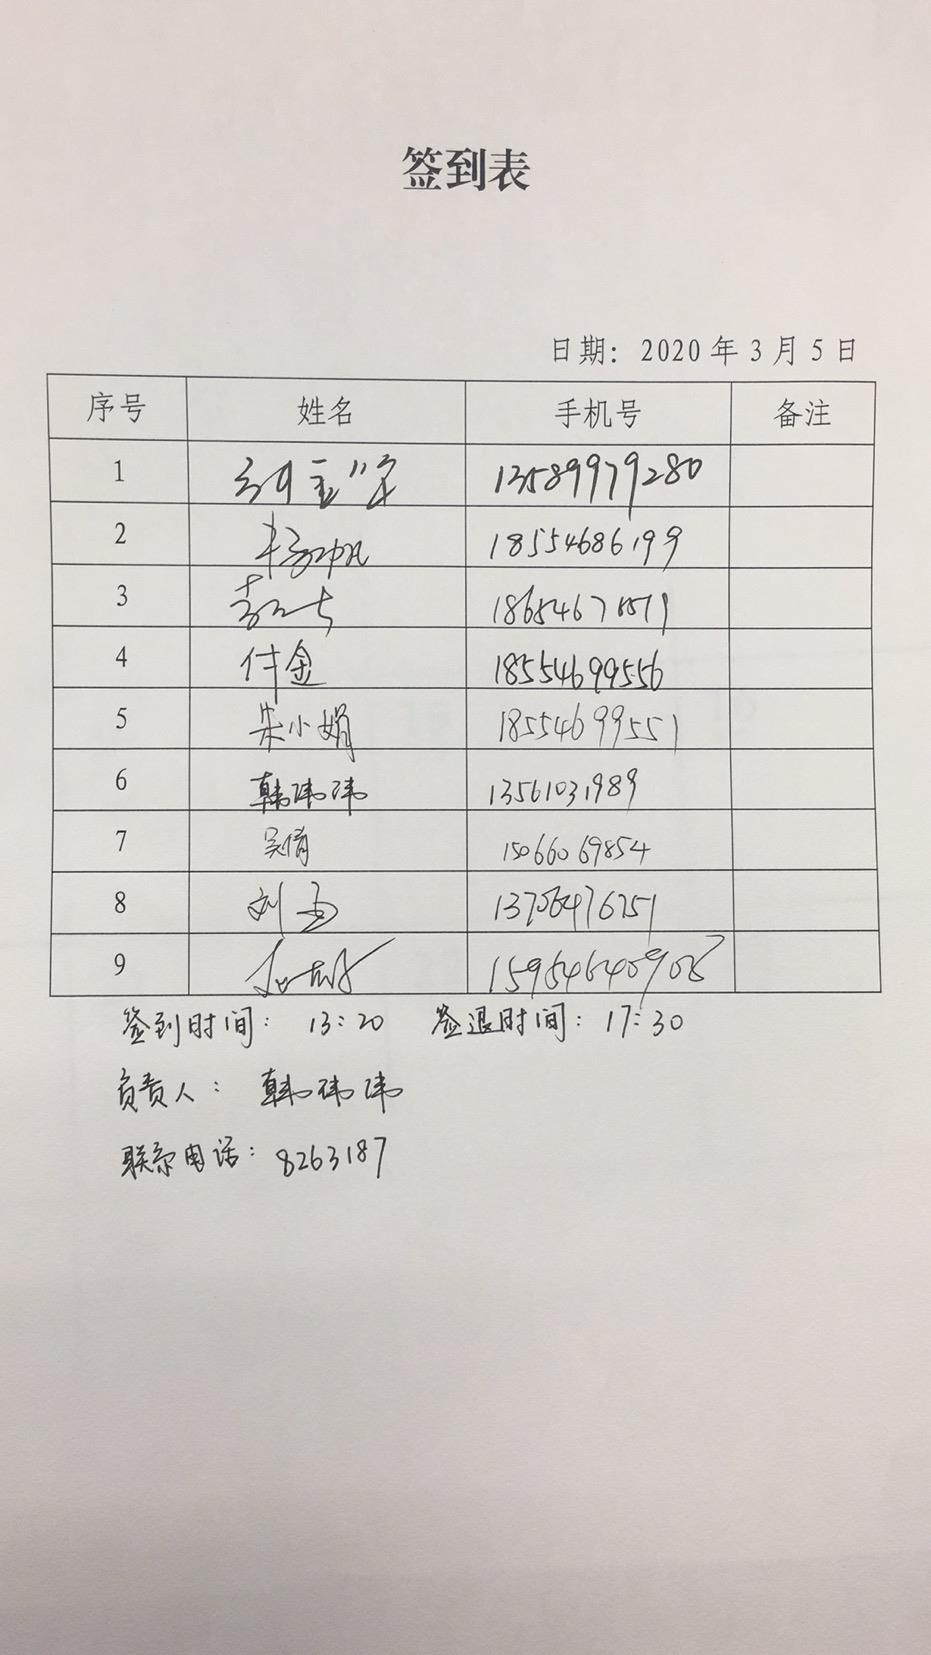 签到表
日期：2020年3月5日
序号 姓名 手机号 备注
1 13589979280
2 杨帅帆 18554686199
3
4 付金 18554699556
5 朱小娟 18554699551
6 韩玮玮 13561031989
7 吴倩 15066069854
8 刘 13706476751
9
签到时间： 13:20 签退时间：17:30
负责人： 韩玮玮
联系电话：8263187